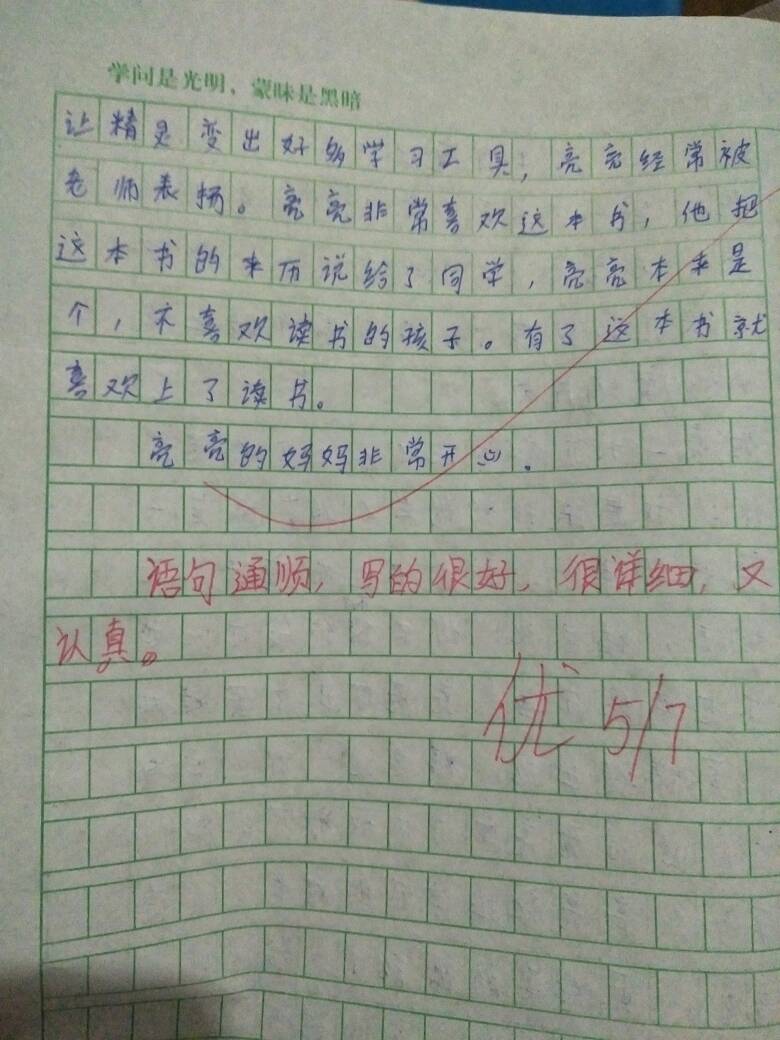 学问是光明，蒙昧是黑暗
让精灵变出好的学习工具，亮亮经常被
老师表扬。亮亮非常喜欢这本书，他把
这本书的来历说给了同学，亮亮本来是
个，不喜欢读书的孩子。有了这本书就
喜欢上了读书。
亮亮的妈妈非常开心。
语句通顺，写的很好，很详细，又
认真。
优 5/7